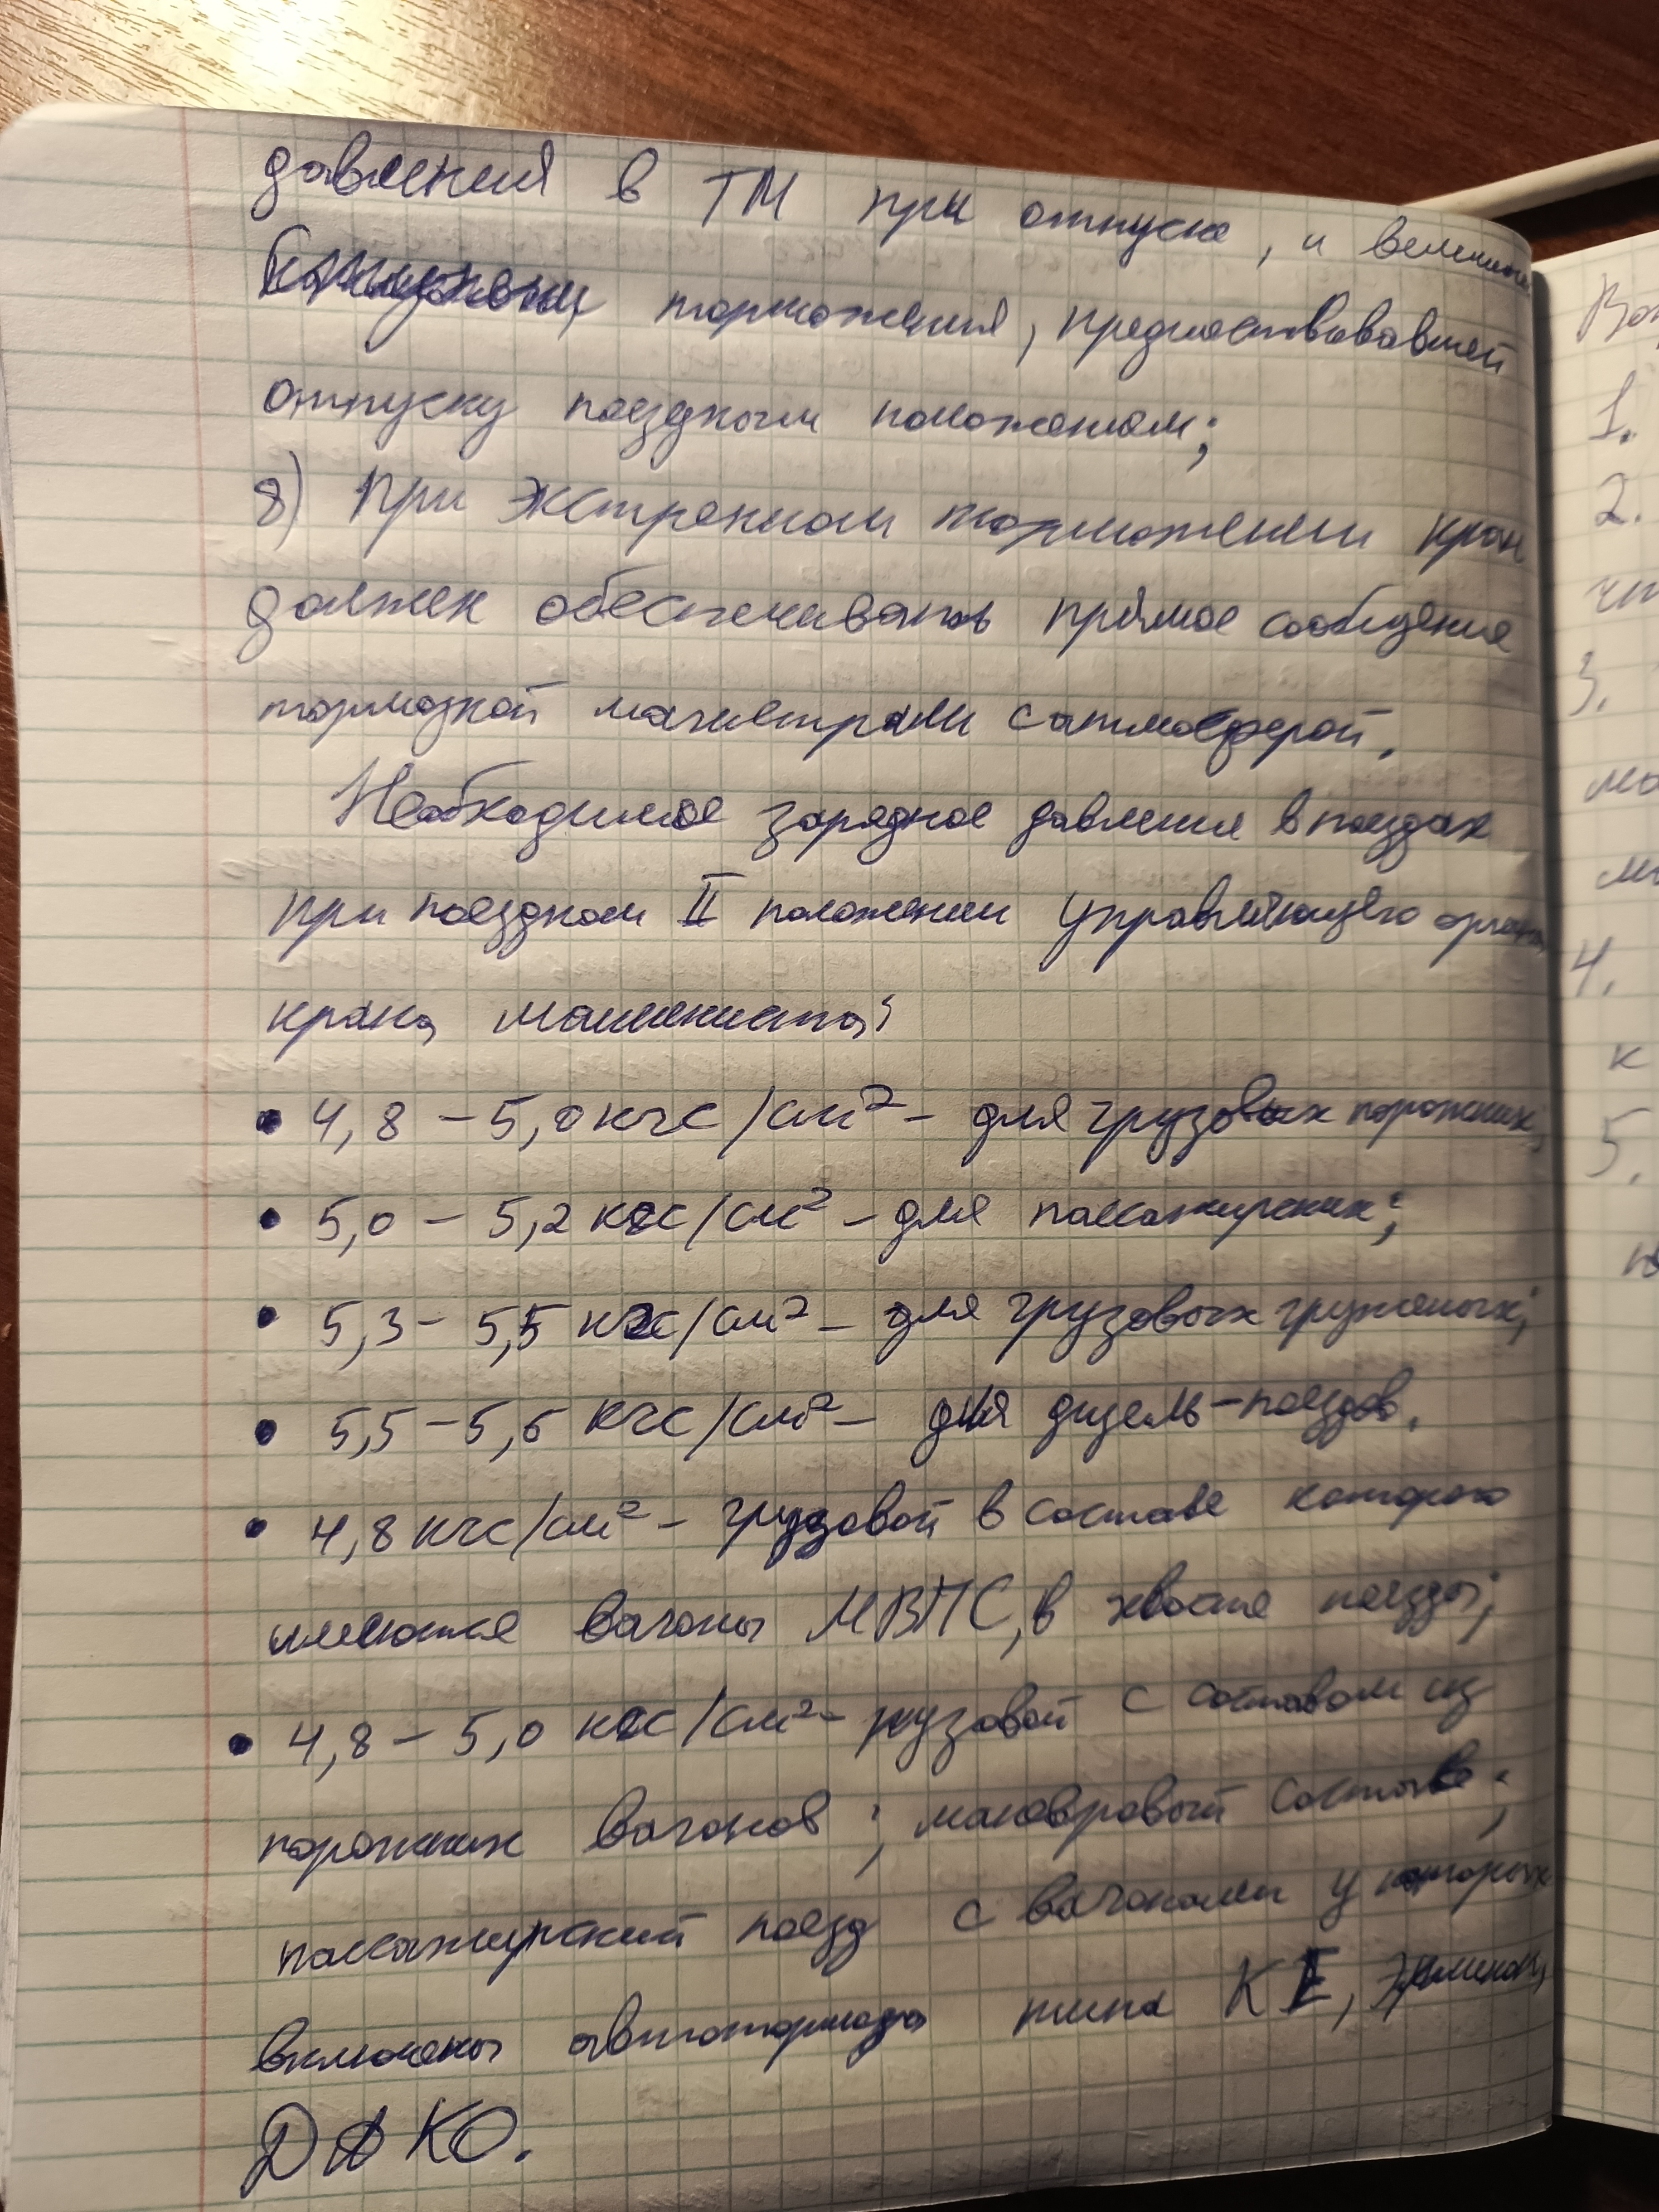 давления в ТМ при отпуске, и величины
торможения, предшествовавшей
отпуску поездным положением;
8) При экстренном торможении кран
должен обеспечивать прямое сообщение
тормозной магистрали с атмосферой.
Необходимое зарядное давление в поездах
при поездном II положении управляющего органа
крана машиниста:
• 4,8 – 5,0 кгс/см² – для грузовых порожних;
• 5,0 – 5,2 кгс/см² – для пассажирских;
• 5,3 – 5,5 кгс/см² – для грузовых груженых;
• 5,5 – 5,6 кгс/см² – для дизель-поездов.
• 4,8 кгс/см² – грузовой в составе которого
имеются вагоны МВПС, в хвосте поезда;
• 4,8 – 5,0 кгс/см² – грузовой с составом из
порожних вагонов; маневровый состав;
пассажирский поезд с вагонами у которых
включены автотормоза типа КЕ, Эрликон,
ДАКО.
Во
1.
2.
3.
4.
к
5.